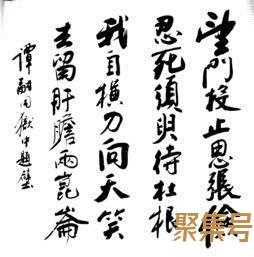 望門投止思張儉
忍死須臾待杜根
我自横刀向天笑
去留肝膽兩崑崙
譚嗣同獄中題壁
聚集号